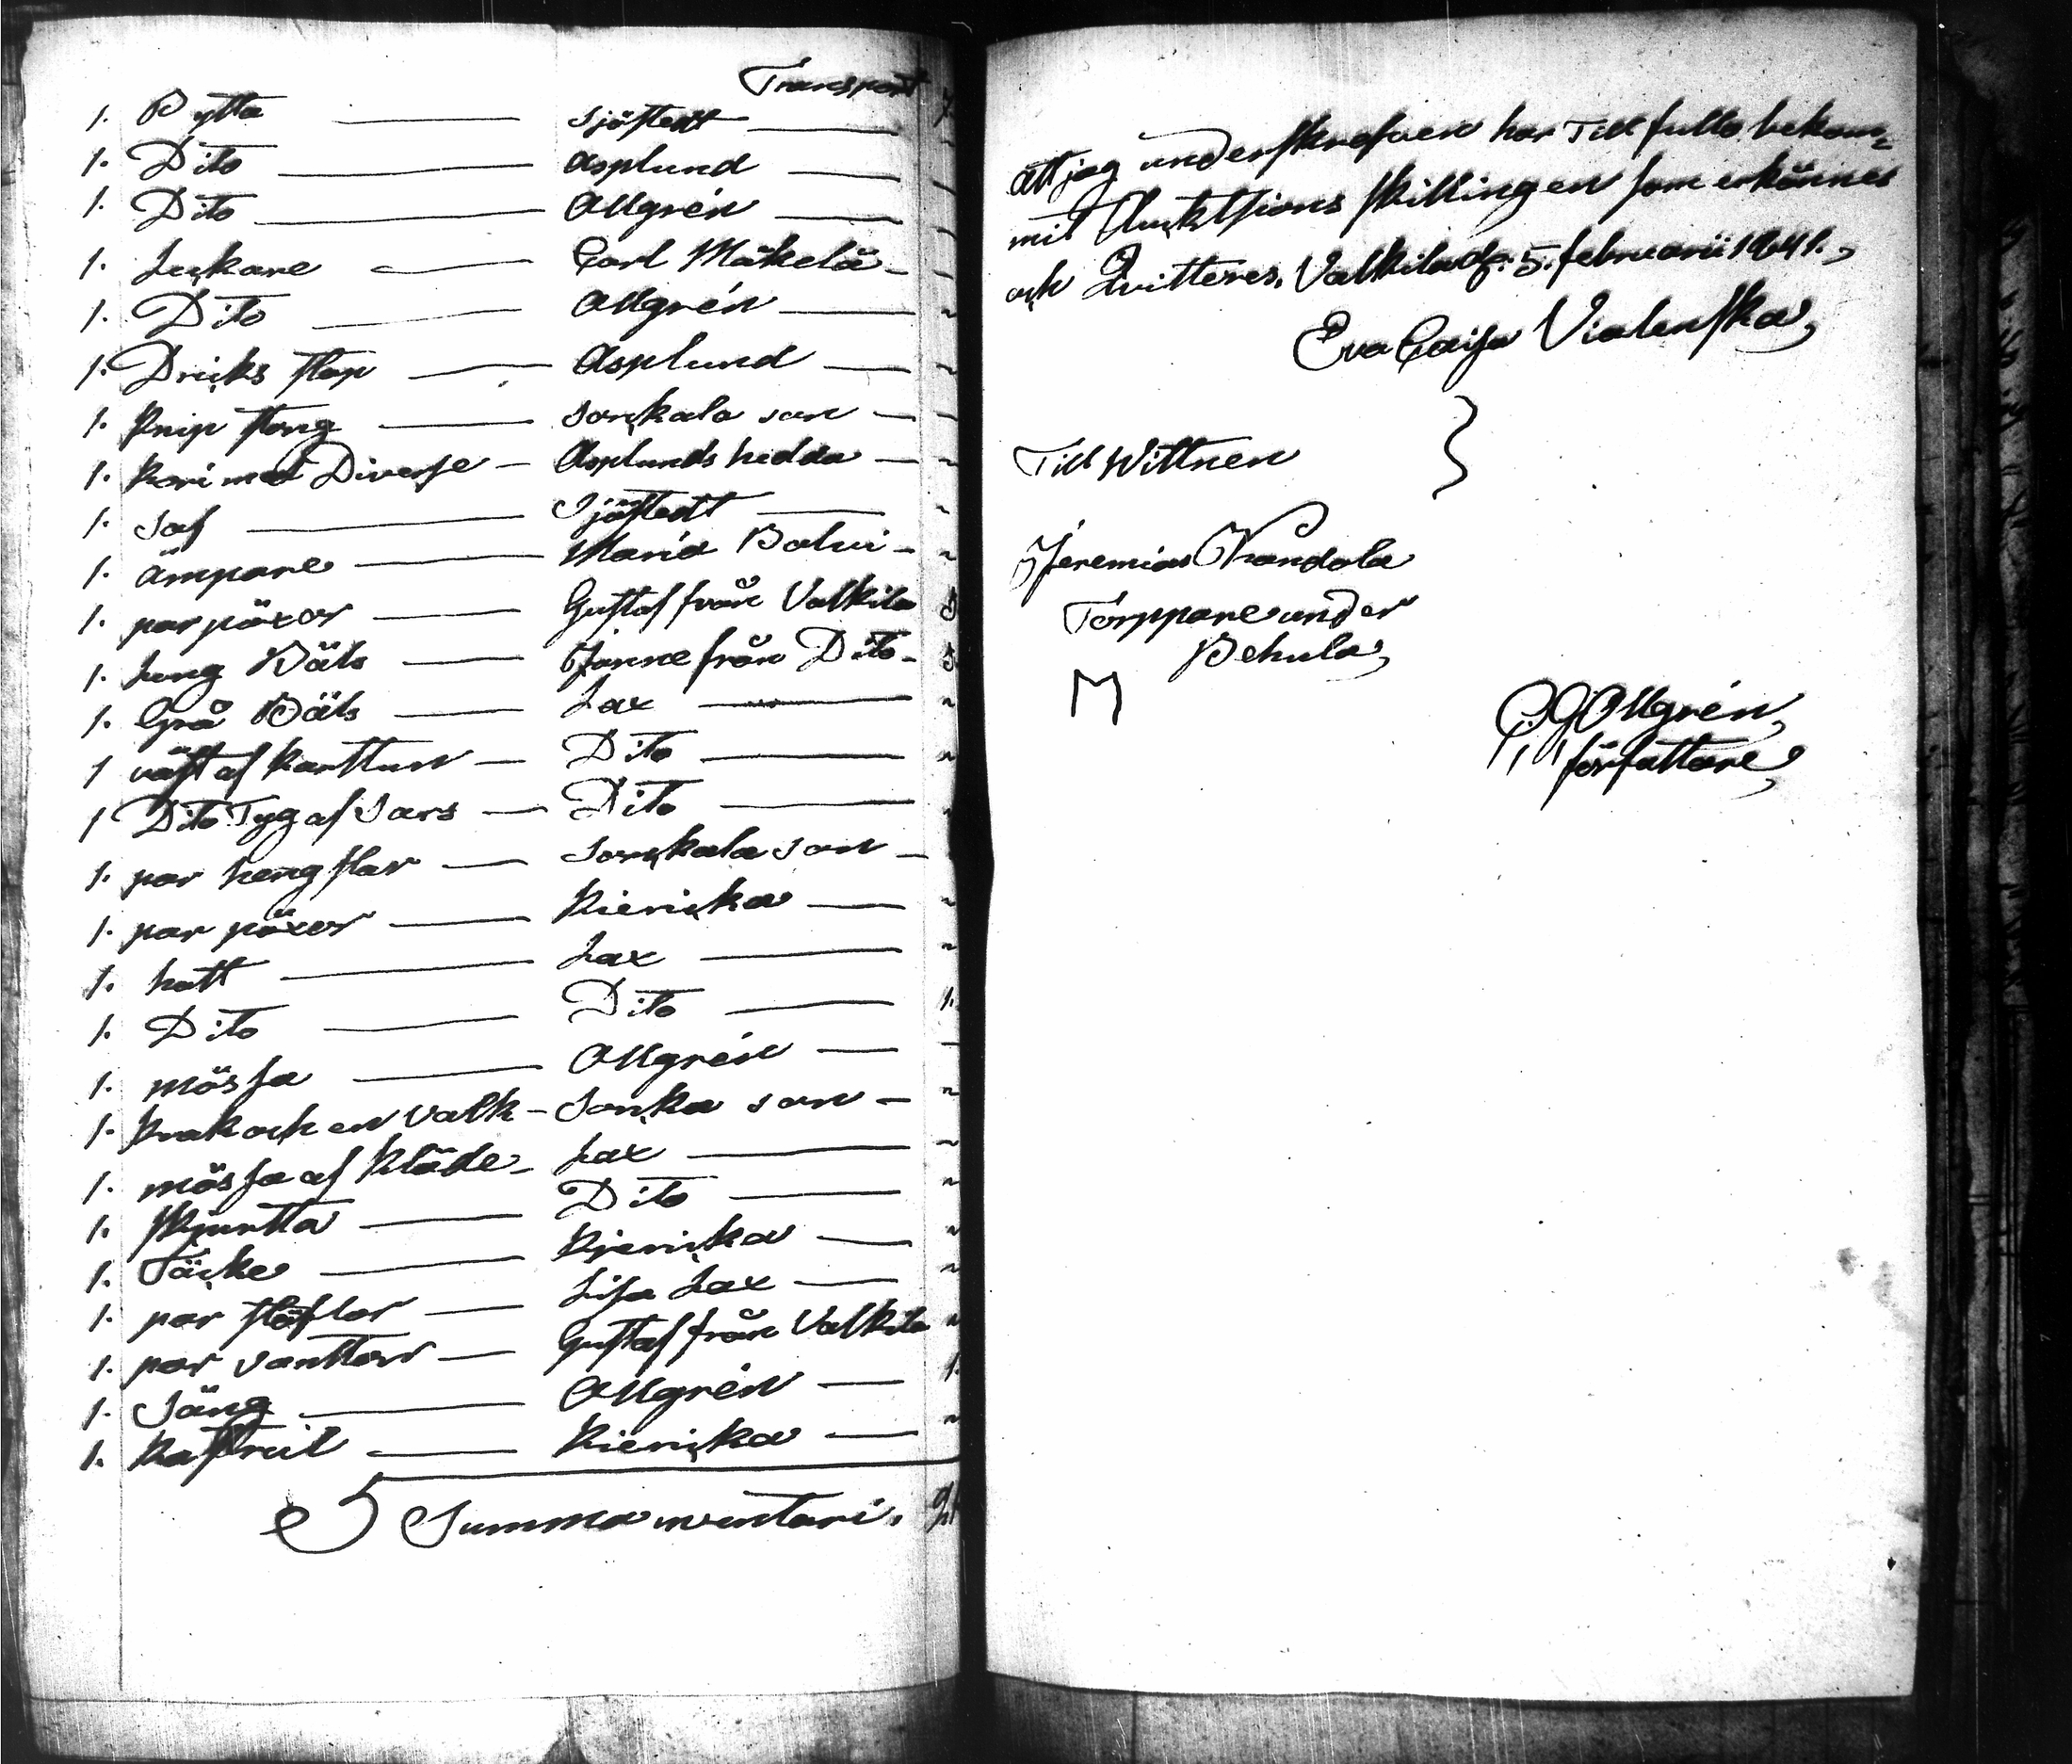 Transport 7
1. Bytta — Sjöstedt —
1. Dito — Asplund —
1. Dito — Allgrén —
1. Luckare — Carl Mäkelä —
1. Dito — Allgrén —
1. Dricks stop — Asplund —
1. Knip tong — Sorkala son —
1. Kori med Diverse — Asplunds hedda —
1. Saf — Sjöstedt —
1. ämpare — Maria Bolvi —
1. par påxor — Gustaf från Valkila
1. Lung Bälts — Janne från Dito —
1. Grå Bälts — Lax —
1 väst af karttun — Dito —
1 Dito Tyg af Sars — Dito —
1. par heng slar — Sorkala son —
1. par påxor — Kiericka —
1. hatt — Lax —
1. Dito — Dito — 1.
1. mössa — Allgrén —
1. krak och en valk — Sonka son —
1. mössa af kläde — Lax —
1. skjurtta — Dito —
1. Täcke — Kjericka —
1. par stöflor — Lisa Lax —
1. par vanttar — Gustaf från Valkila
1. Säng — Allgrén — 1.
1. Kastruil — Kiericka —
Summa inventari.
att jag underskrefven har Till fullo bekom=
mit Aucktsions skillingen som erkännes
och Qvitteres, Valkila d. 5. februarii 1841.,
Eva Caisa Vialenska,
Till Wittnen
Jeremias Kandola
Torppare under
Behula,
M
C. G. Allgrén,
författare,